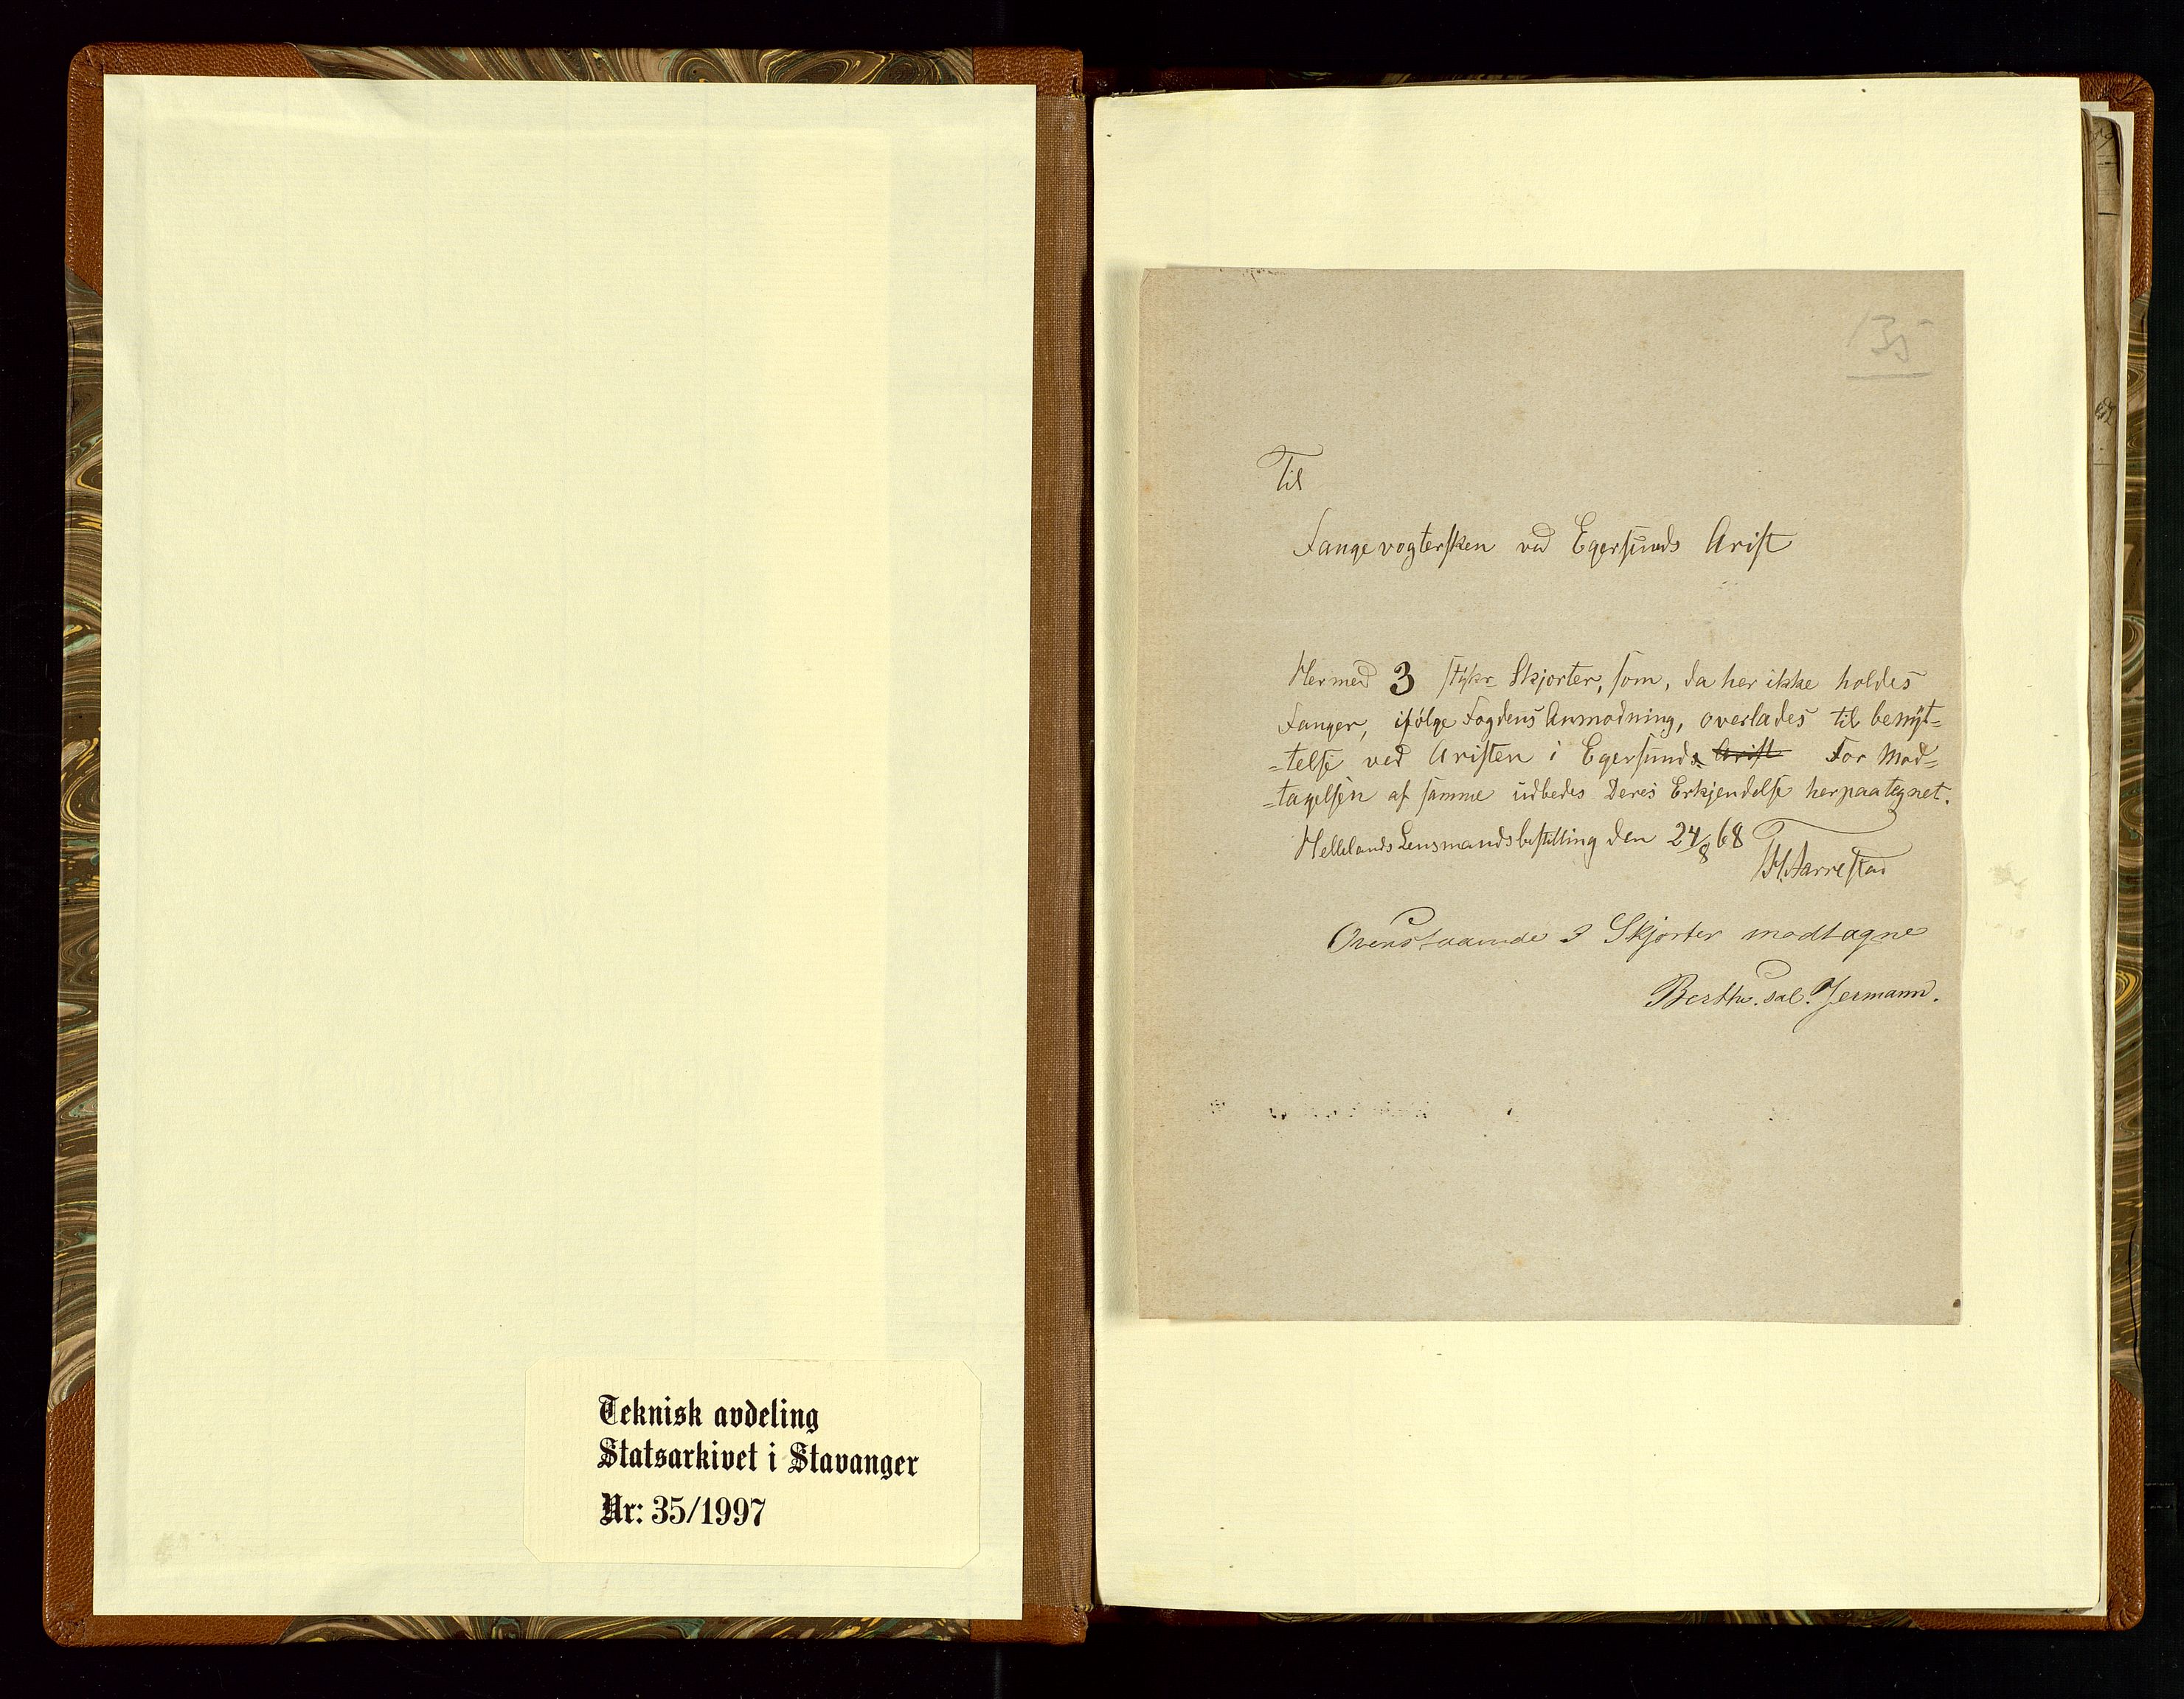 Teknisk avdeling
Statsarkivet i Stavanger
Nr: 35/1997
135
Til
Fangevogtersken ved Egersunds Arist
Hermed 3 stykr Skjorter, som, da her ikke holdes
Fanger, ifölge Fogdens Anmodning, overlades til benyt=
=telse ved Aristen i Egersunds Arist For Mod=
=tagelsen af samme udbedes Deres Erkjendelse herpaategnet.
Hellelands Lensmandsbestilling den 24/8 68
Ovenstaaende 3 Skjorter modtagne
Berthe. sal. Jermann.